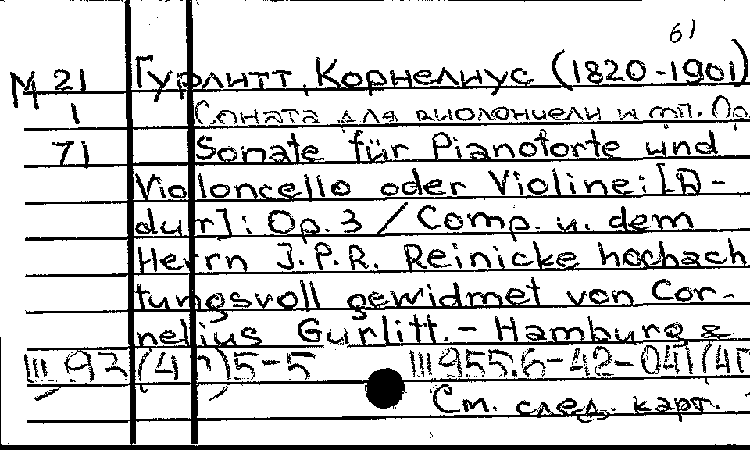 61
М 21 Гурлитт, Корнелиус (1820-1901)
1 Соната для виолончели и фп. Op
71 Sonate für Pianoforte und
Violoncello oder Violine: [D-
dur]: Op. 3 / Comp. u. dem
Herrn J.P.R. Reinicke hochach
tungsvoll gewidmet von Cor-
nelius Gurlitt. - Hamburg &
III 93 5-5 III 955.6-42-041
См. след. карт.